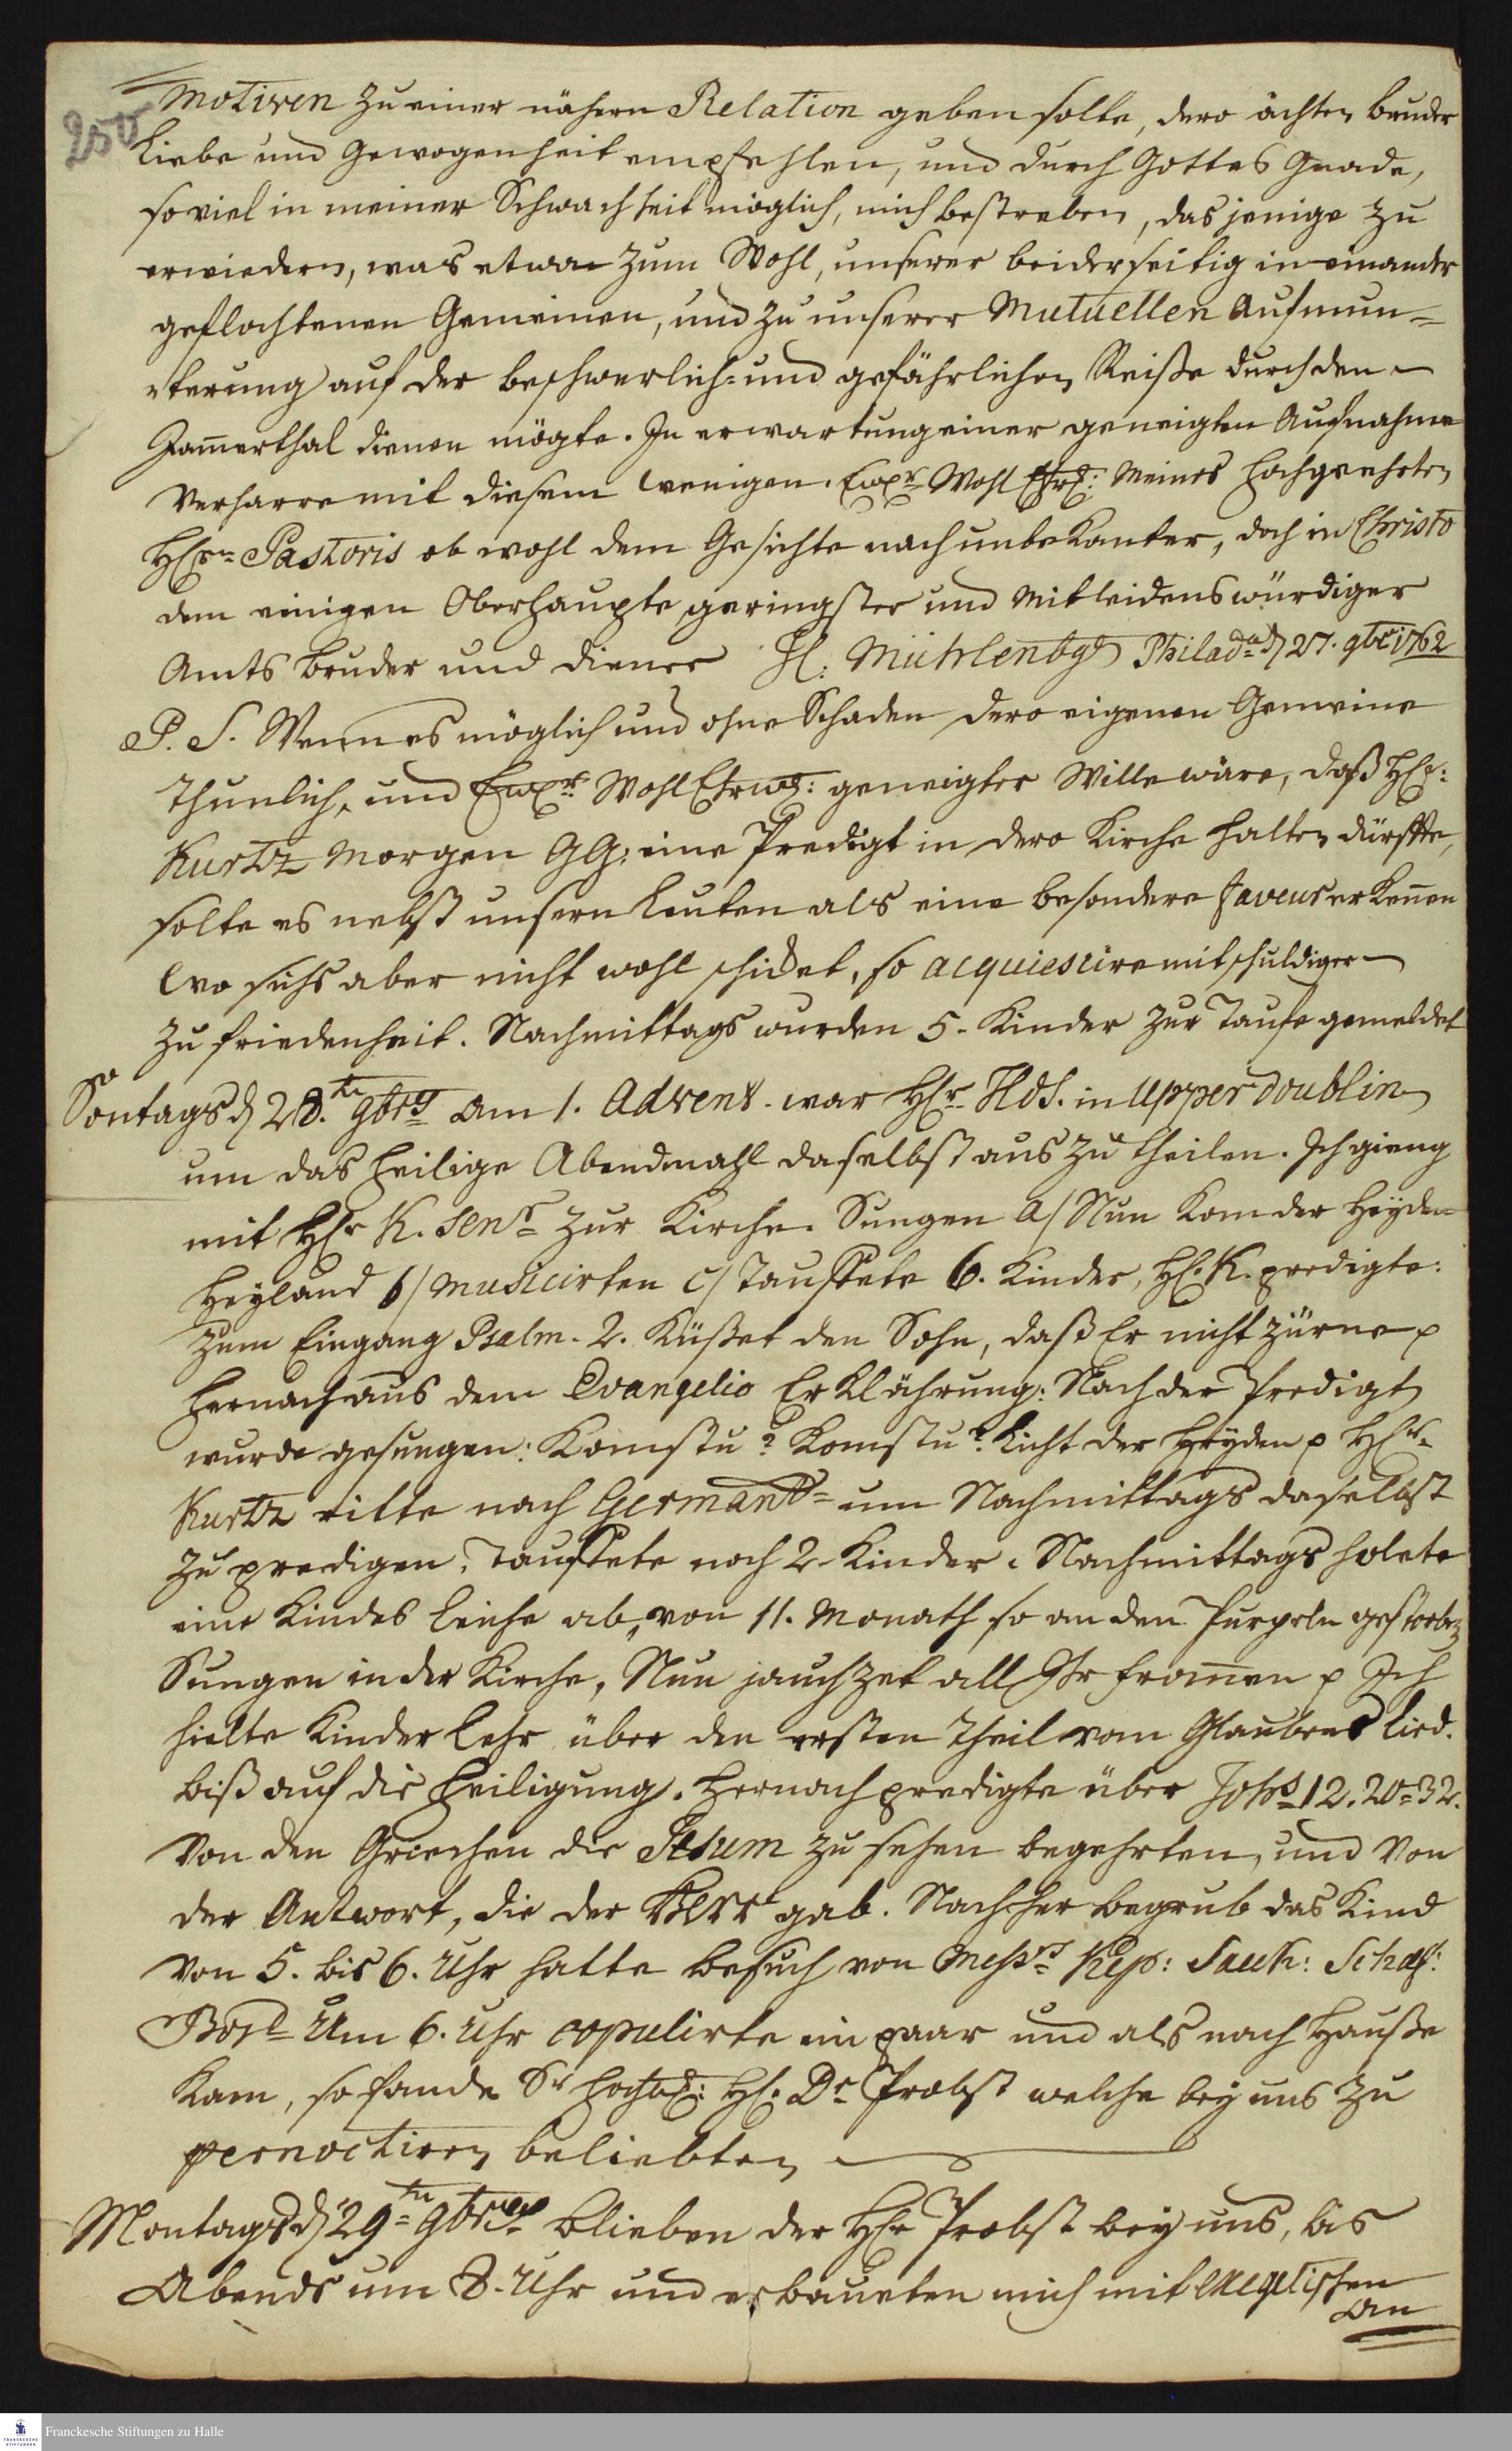 250
Motiven zu einer nähern Relation geben solte, dero ächten Bruder
Liebe und Gewogenheit empfehlen, und durch Gottes Gnade,
so viel in meiner Schwachheit möglich, mich bestreben, das jenige zu
erwiedern, was etwa zum Wohl, unserer beiderseitig in einander
geflochtenen Gemeinen, und zu unserer Mutuellen Aufmun=
terung auf der beschwerlich= und gefährlichen Reiße durch den
Jam̄erthal dienen mögte. In erwartung einer geneigten Aufnahme
Verharre mit diesem wenigen. Ewr Wohl Ehrw: Meines Hochgeehrten
HErn Pastoris ob wohl dem Gesichte nach unbekanter, doch in Christo
dem einigen Oberhaupte geringster und Mitleidenswürdiger
Amts Bruder und diener H: Mühlenbg Philada d 27. 9br 1762
P. S. Wenn es möglich und ohne Schaden dero eigenen Gemeine
thunlich, und Ewr WohlEhrw: geneigter Wille wäre, daß HEr:
Kurtz Morgen GG: eine Predigt in dero Kirche halten dürffte,
solte es nebst unsern Leuten als eine besondere Faveur erken̄en
wo sichs aber nicht wohl schicket, so acquiescire mit schuldiger
zufriedenheit. Nachmittags wurden 5. Kinder zur Taufe gemeldet
Sontags d 28.tn 9brs am 1. Advent. war HEr Hds. in Upper doublin
um das heilige Abendmahl daselbst aus zu theilen. Ich gieng
mit HEr K. Senr zur Kirche. Sungen a/ Nun kom der Heyden
Heyland b/ musicirten c/ tauffete 6. Kinder, HE. K. predigte:
zum Eingang Psalm. 2. Küßet den Sohn, daß Er nicht zürne p
hernach aus dem Evangelio Erklährung: Nach der Predigt
wurde gesungen: Komstu? Komstu? Licht der Heyden p HEr
Kurtz ritte nach Germant= um Nachmittags daselbst
zu predigen. Tauffete noch 2. Kinder. Nachmittags holete
eine Kindes Leiche ab, von 11. Monath so an den Purpeln gestorben
Sungen in der Kirche, Nun jauchzet all Ihr from̄en p Ich
hielte Kinder Lehr über den ersten Theil vom Glaubens Lied.
biß auf die Heiligung. Hernach predigte über Johs 12. 20=32.
Von den Griechen die Jesum zu sehen begehrten, und Von
der Antwort, die der HErr gab. Nachher begrub das Kind
Von 5. bis 6. Uhr hatte Besuch von Messrs Kep: Sauk: Schaf:
Um 6. Uhr copulirte ein paar und als nach Hauße
kam, so fande Sr Hochw: HE. Dr Probst welche bey uns zu
pernoctiren beliebten
Montags d 29tn 9bris blieben der HEr Probst bey uns, bis
Abends um 8. Uhr und erbaueten mich mit exegetischen
an
Franckesche Stiftungen zu Halle